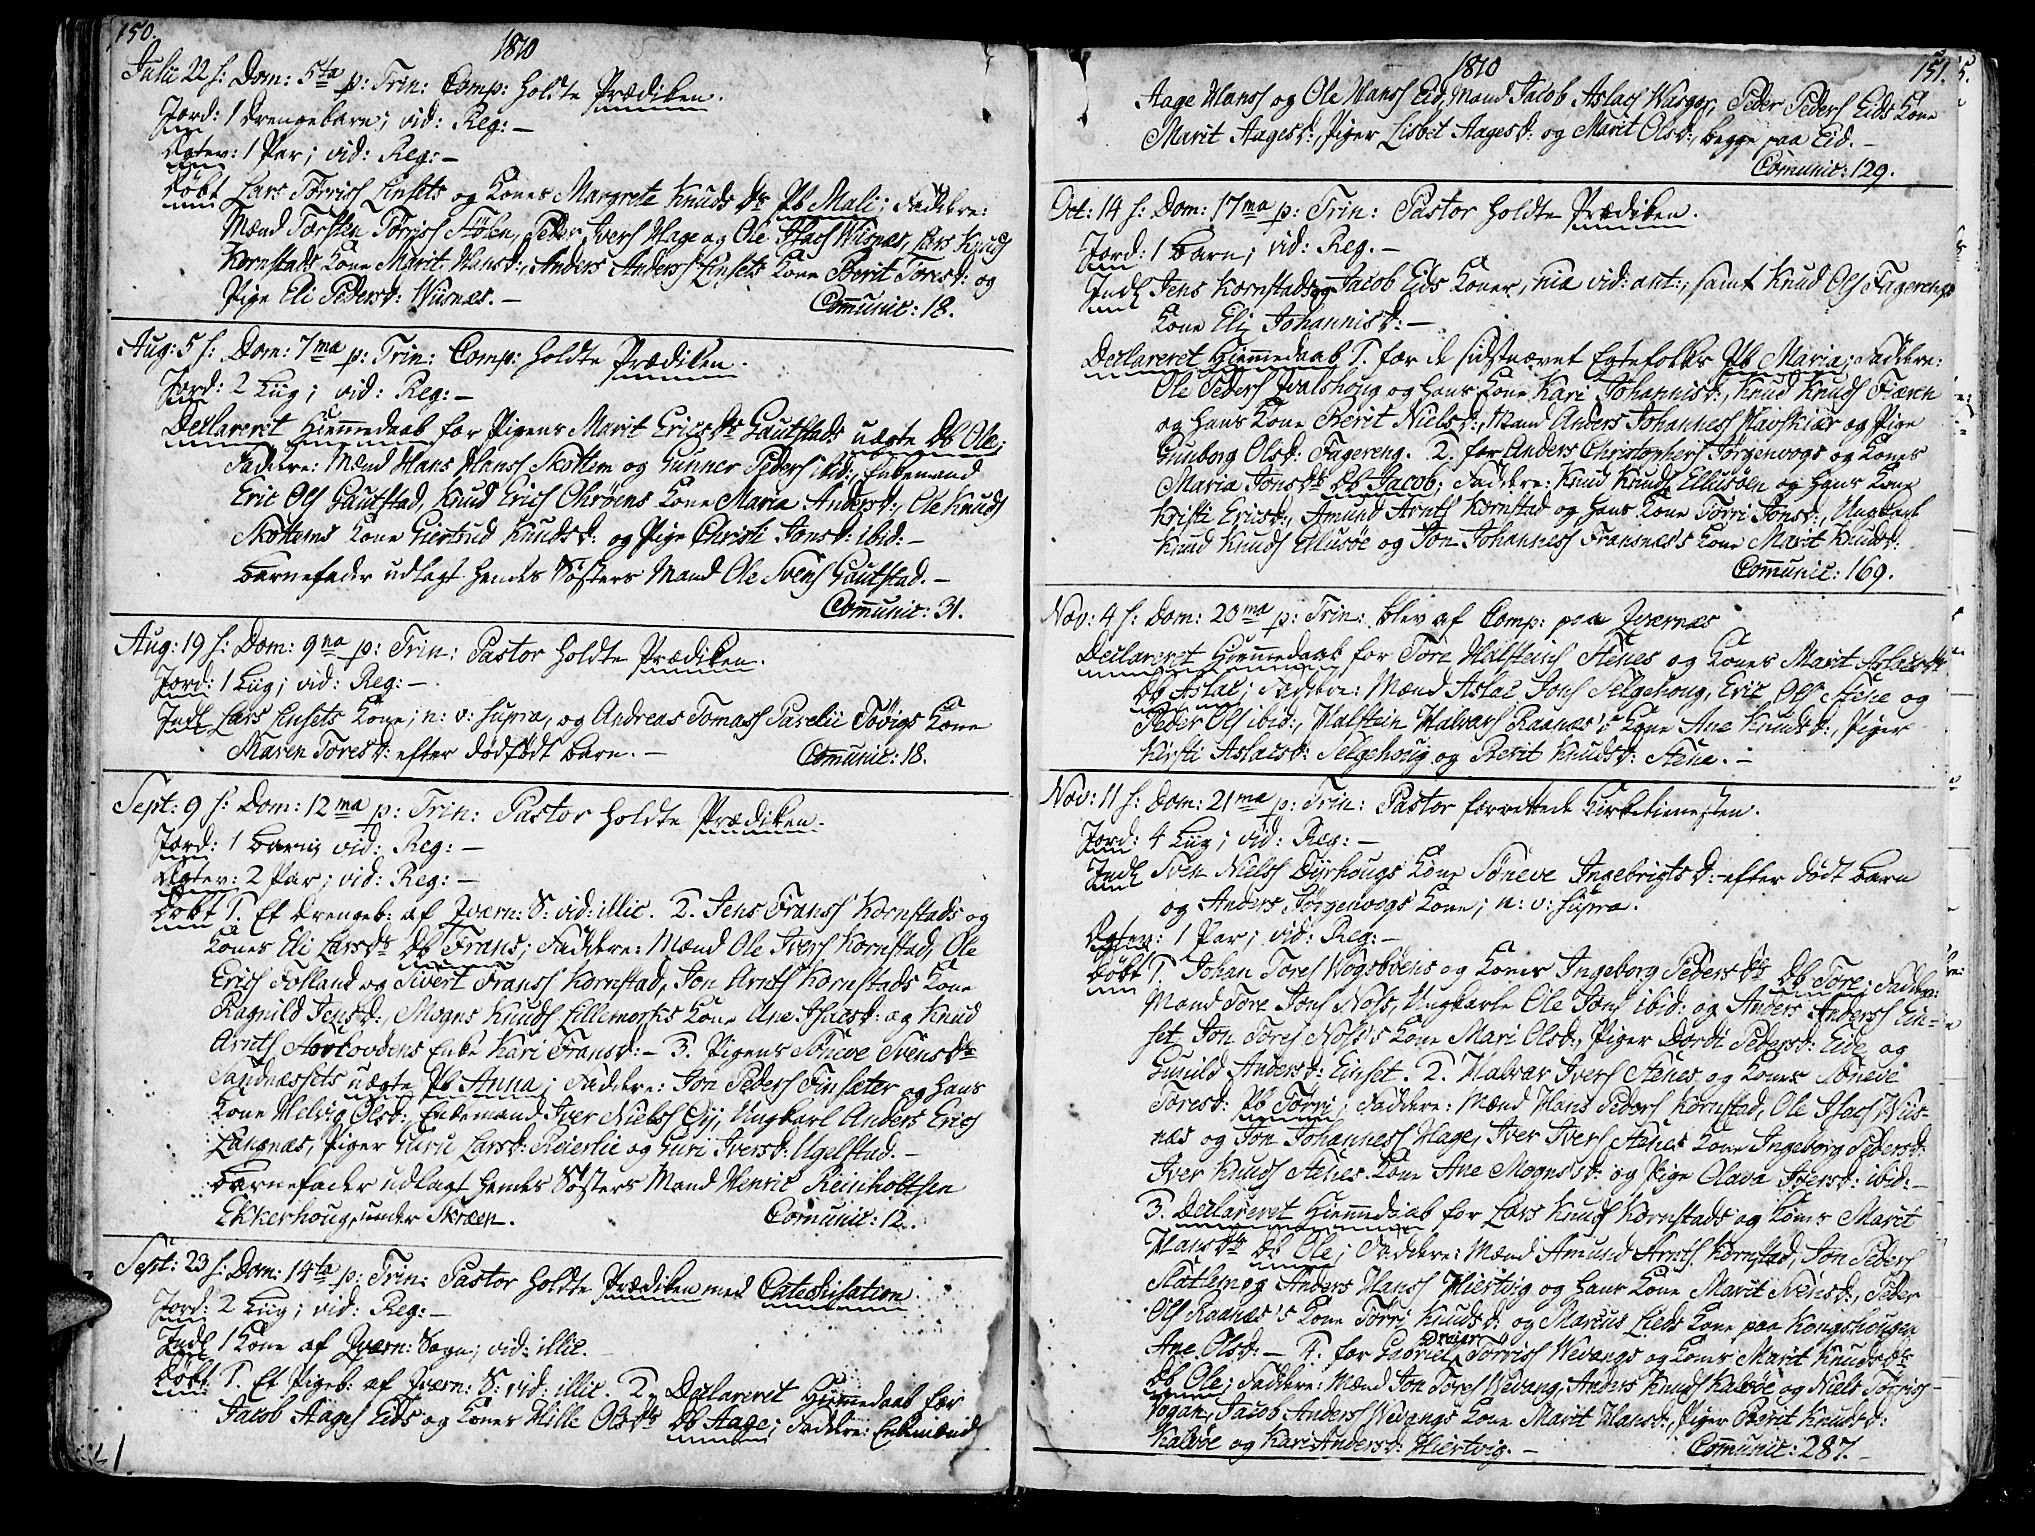 150.
1810
Julii 22 h: Dom: 5ta p: Trin: Comp: holdte Prædiken.
Jord: 1 drengebarn; vid: Reg: —
Ægtev: 1 Par; vid: Reg: —
Døbt Lars Torris Einsets og Kones Margrete Knuds Dr Pb Mali; Faddere:
Mænd Torsten Torris Stölen, Peder Ivers Hage og Ole Isacs Wisnæs, Lars Knuds
Kornstads Kone Marit Hansd:, Anders Anders Einsets Kone Berit Toresd: og
Pige Eli Pedersd: Wisnæs. —
Comunic: 18.
Aug: 5 h: Dom: 7ma p: Trin: Comp: holdte Prædiken.
Jord: 2 Liig; vid: Reg: —
Declareret Hiemmedaab for Pigens Marit Ericsdr Gautstads uægte Db Ole;
Faddere: Mænd Hans Hans Skottem og Gunner Peders ibid:, Enkemand
Eric Ols Gautstad, Knud Erics Ohröens Kone Maria Andersd:, Ole Knuds
Skottems Kone Giertrud Knudsd: og Pige Christi Jonsd: ibid: —
Barnefader udlagt hendes Søsters Mand Ole Svens Gautstad. —
Comunic: 31.
Aug: 19 h: Dom: 9na p: Trin: Pastor holdte Prædiken.
Jord: 1 Liig; vid: Reg: —
Indl Lars Einsets Kone; n: v: supra, og Andreas Tomas Parelii Tövigs Kone
Maren Toresd: efter dödfödt Barn. —
Comunic: 18.
Sept: 9 h: Dom: 12ma p: Trin: Pastor holdte Prædiken.
Jord: 1 Barn; vid: Reg: —
Ægtev: 2 Par; vid: Reg: —
Döbt 1. Et drengeb: af Qværn: S: vid: illic. 2. Jens Frans Kornstads og
Kones Eli Larsdr Db Frans; Faddere: Mænd Ole Ivers Kornstad, Ole
Erics Folland og Sivert Frans Kornstad, Jon Arnts Kornstads Kone
Ragnild Jensd:, Mogns Knuds Lillemorks Kone Ane Isacsd: og Knud
Arnts Enke Kari Fransd: — 3. Pigens Söneve Svensdr
Sandnæssets uægte Pb Anna; Faddere: Jon Peders Finsæter og hans
Kone Helvig Olsd:, Enkemand Iver Niels Öy, Ungkarl Anders Erics
Langnæs, Piger Guru Larsd: Reierlie og Guri Iversd: Ugelstad. —
Barnefader udlagt hendes Søsters Mand Henric Reinholtsen
Ekkerhoug, under Skræen.
Comunic: 12.
Sept: 23 h: Dom: 14ta p: Trin: Pastor holdte Prædiken med Catechisation
Jord: 2 Liig; vid: Reg: —
Indl 1 Kone af Qværn: Sogn; vid: illic.
Döbt 1. Et Pigeb: af Qværn: S: vid: illic. 2. Declareret Hiemmedaab for
Jacob Aages Eids og Kones Mille Olsdr Db Aage; Faddere: Enkemænd
1810
151.
Aage Hans og Ole Hans Eid, Mand Jacob Aslacs, Peder Peders Eids Kone
Marit Aagesd:, Piger Lisbet Aagesd: og Marit Olsd:, begge paa Eid. —
Comunic: 129.
Oct: 14 h: Dom: 17ma p: Trin: Pastor holdte Prædiken.
Jord: 1 Barn; vid: Reg. —
Indl Jens Kornstads og Jacob Eids Koner, vid: ant:, samt Knud Ols Fagerengs
Kone Eli Johannisd: —
Declareret Hiemmedaab 1. for de sidstnævnt Egtefolks Pb Maria; Faddere:
Ole Peders Hvalshoug og hans Kone Kari Johannisd:, Knud Knuds Fiæren
og hans Kone Berit Nielsd:, Mand Anders Johannes Havskiær og Pige
Gunborg Olsd: Fagereng. 2. for Anders Christophers Jörgenvogs og Kones
Maria Jonsdr Db Jacob; Faddere: Knud Knuds Ellusöen og hans Kone
Kristi Ericsd:, Amund Arnts Kornstad og hans Kone Torri Jonsd:, Ungkarl
Knud Knuds Ellusöe og Jon Johannes Fransnæs's Kone Marit Knudsd:
Comunic: 169.
Nov: 4 h: Dom: 20ma p: Trin: blev af Comp: paa Qværnæs
Declareret Hiemmedaab for Tore Halsteins Stenes og Kones Marit Aslacsdr
Db Aslac; Faddere: Mænd Aslac Jons Selgehoug, Eric Ols Stene og
Peder Ols ibid:, Halstein Halvars Raanæs's Kone Ane Knudsd:, Piger
Kirsti Aslacsd: Selgehoug og Berit Knudsd: Stene. —
Nov: 11 h: Dom: 21ma p: Trin: Pastor forrettede Kirketienesten.
Jord: 4 Liig; vid: Reg: —
Indl Sven Niels Dyrhougs Kone Söneve Ingebrigtsd: efter dödt Barn
og Anders Jörgenvogs Kone; n: v: supra.
Ægtev: 1 Par; vid: Reg: —
Döbt 1. Johan Tores Wogsböens og Kones Ingeborg Pedersdr Db Tore; Faddere:
Mand Tore Jons Noss, Ungkarle Ole Jons ibid: og Anders Anders Ein-
set, Jon Tores Noss's Kone Mari Olsd:, Piger Dordi Pedersd: Eide og
Gunild Andersd: Einset. 2. Halvar Ivers Stenes og Kones Söneve
Toresd: Pb Torri; Faddere: Mænd Hans Peders Kornstad, Ole Isacs Wiis-
næs og Jon Johannes Hage, Iver Ivers Stenes Kone Ingeborg Pedersd:
Iver Knuds Stenes Kone Ane Mognsd: og Pige Olava Itersd: ibid: —
3. Declareret Hiemmedaab for Lars Knuds Kornstads og Kones Marit
Hansdr Db Ole; Faddere: Mænd Amund Arnts Kornstad, Jon Peders
Slatlem og Anders Hans Hiertvig og hans Kone Marit Svensd:, Peder
Ols Raanæs's Kone Torri Knudsd: og Marcus Lieds Kone paa Kongshougen
Ane Olsd: — 4. for Gabriel Dreier Torris Wevangs og Kones Marit Knudsdr
Db Ole; Faddere: Mænd Jon Tores Wevang, Anders Knuds Kalvöe og Niels Torris
Vogan, Jacob Anders Wevangs Kone Marit Hansd:, Piger Berit Knudsd:
Kalvöe og Kari Andersd: Hiertvig. —
Comunic: 287. —